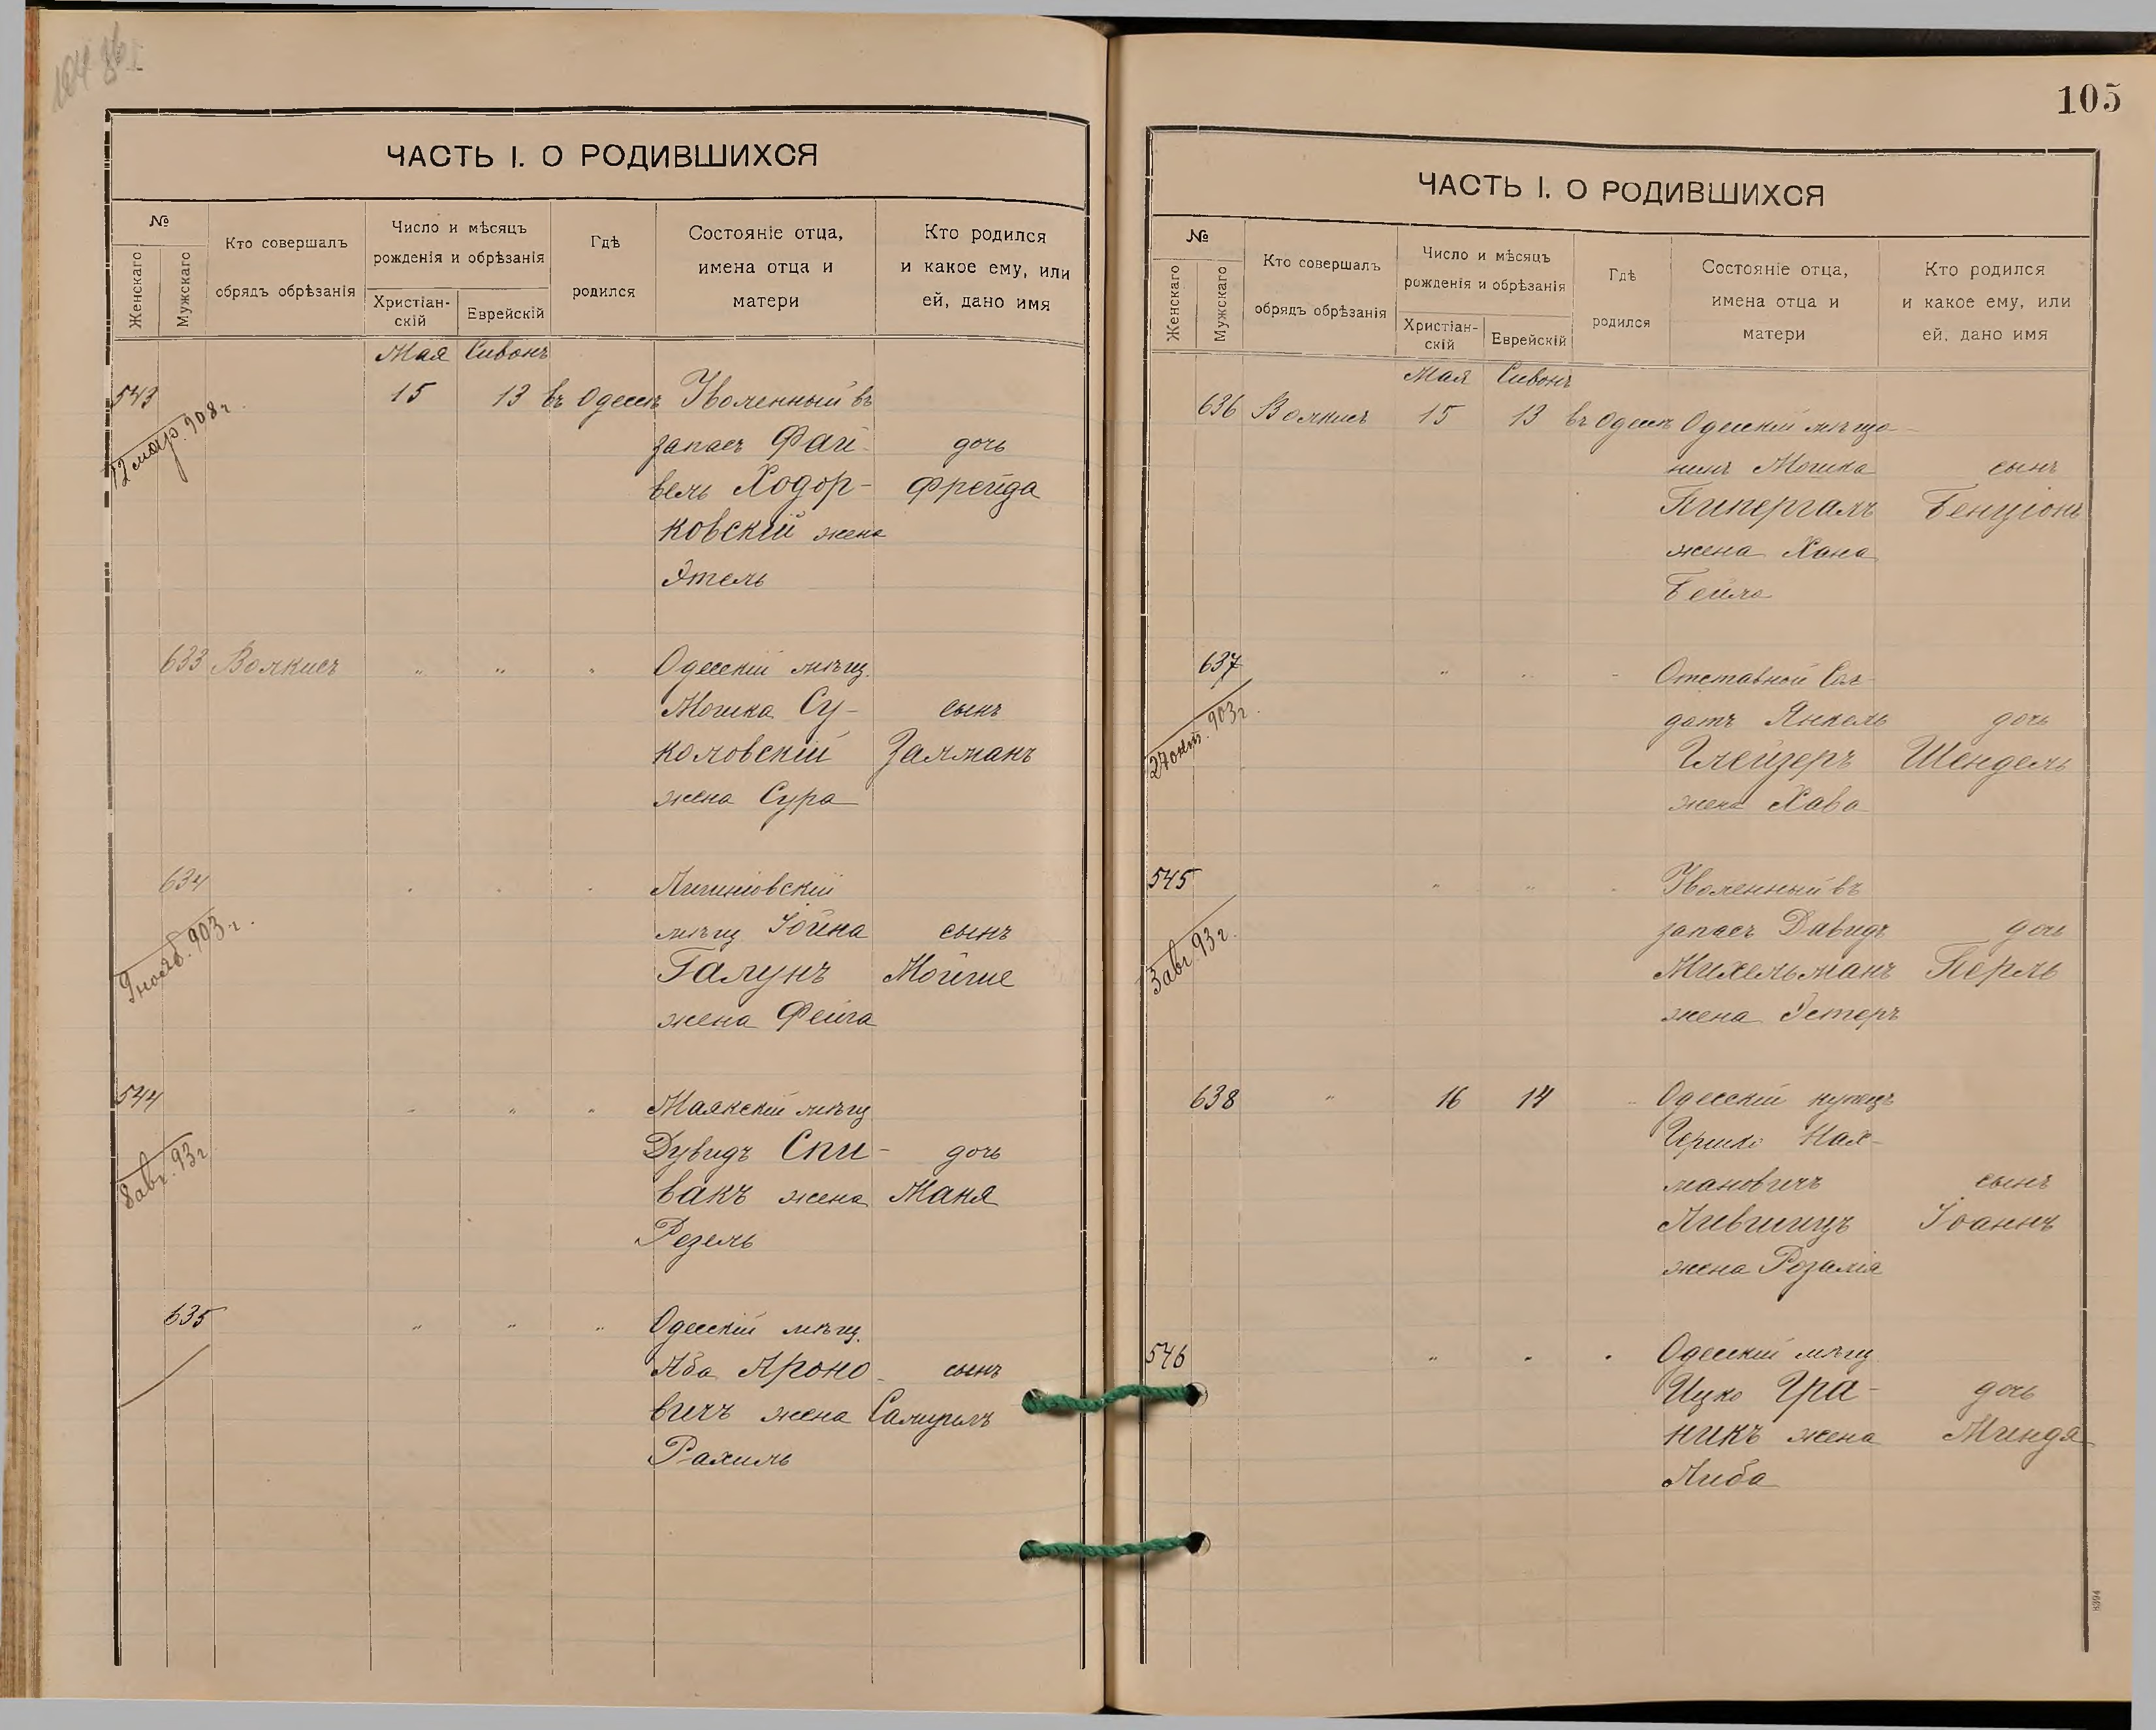 ЧАСТЬ I. О РОДИВШИХСЯ
№
Женскаго
Мужскаго
Кто совершалъ
обрядъ обрѣзанія
Число и мѣсяцъ
рожденія и обрѣзанія
Христіан-
скій
Еврейскій
Гдѣ
родился
Состояніе отца,
имена отца и
матери
Кто родился
и какое ему, или
ей, дано имя
Мая Сивонъ
543 15 13 въ Одессѣ Уволенный въ
12 мар. 908 г.
запасъ Фай- дочь
вель Ходор- Фрейда
ковскій жена
Этель
633 Волкисъ " " " Одесскій мѣщ.
Мошка Су- сынъ
коловскій Залманъ
жена Сура
634 " " "
9 нояб. 903 г.
мѣщ Іойна сынъ
Галунъ Мойше
жена Фейга
544 " " " Маякскій мѣщ
8 авг. 93 г
Дувидъ Спи- дочь
вакъ жена Маня
Резель
635 " " " Одесскій мѣщ.
Аба Ароно- сынъ
вичъ жена Самуилъ
Рахиль
105
ЧАСТЬ I. О РОДИВШИХСЯ
№
Женскаго
Мужскаго
Кто совершалъ
обрядъ обрѣзанія
Число и мѣсяцъ
рожденія и обрѣзанія
Христіан-
скій
Еврейскій
Гдѣ
родился
Состояніе отца,
имена отца и
матери
Кто родился
и какое ему, или
ей, дано имя
Мая Сивонъ
636 Волкисъ 15 13 въ Одессѣ Одесскій мѣща-
нинъ Мошка сынъ
Пипергалъ Бенціонъ
жена Хана
Бейла
637 " " " Отставной Сол-
27 окт. 903 г.
датъ Янкель дочь
Глейзеръ Шендель
жена Хава
545 " " " Уволенный въ
3 авг. 93 г.
запасъ Давидъ дочь
Михельманъ Перль
жена Эстеръ
638 " 16 14 " Одесскій купецъ
Гершко Нах-
мановичъ сынъ
Лившицъ Іоаннъ
жена Розалія
546 " " " Одесскій мѣщ
Ицко Гра- дочь
никъ жена Миндя
Либа
8394